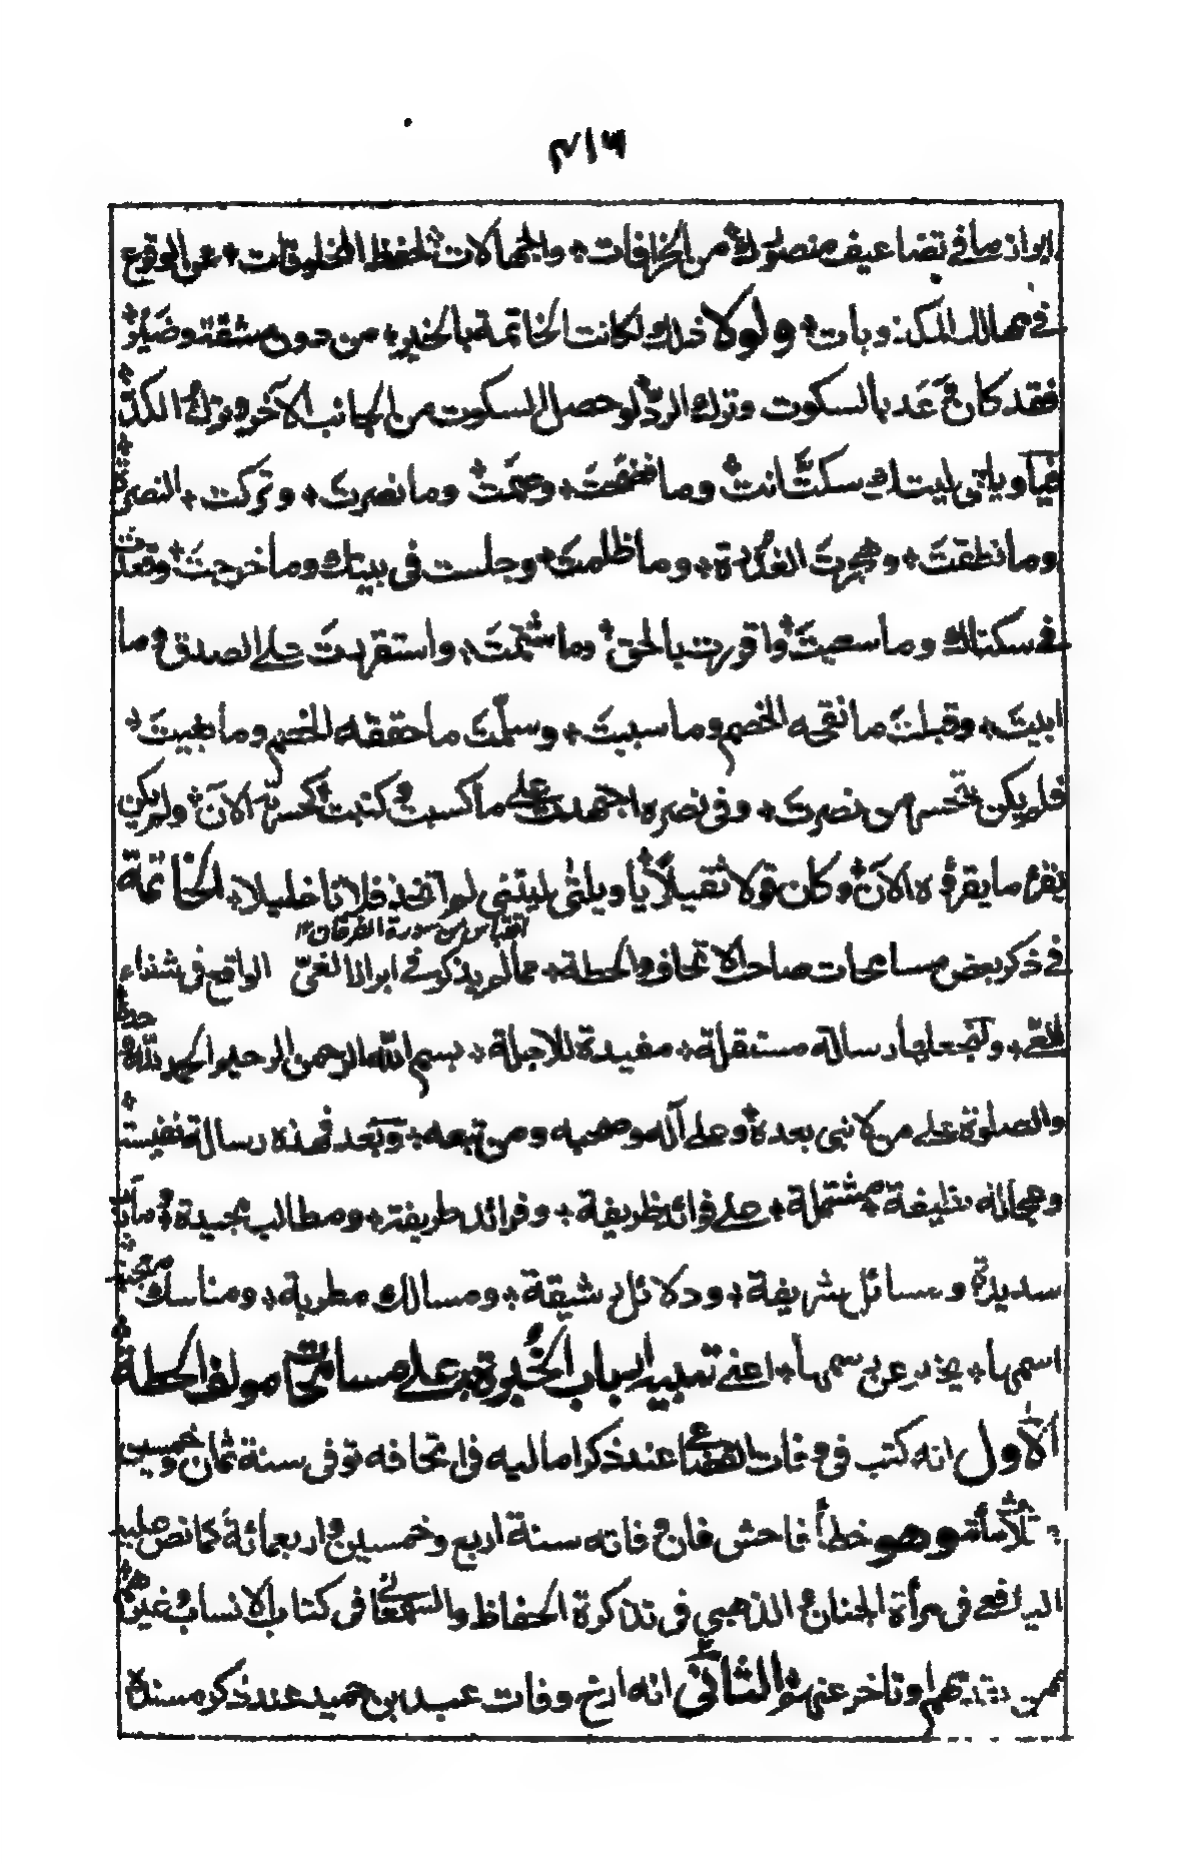 ٤١٦
ابراز ما في تضاعيف منصورك من الخرافات والجهالات لحفظ المخلوقات عن الوقوع
في مهالك المكذوبات ولولا ذلك لكانت الخاتمة بالخير من دون مشقة وضير
فقد كان وعد بالسكوت وترك الرد لو حصل السكوت من الجانب الآخر وترك الكد
فيا ويلتى ليتك سكتّ انت وما نصرت وتركت النصر
وما نطقت وهجرت وما ظلمت وجلست في بيتك وما خرجت وقعدت
في سكناك وما سعيت واقررت بالحق وما شتمت واستقررت على الصدق وما
ابيت وقبلت ما نقحه الخصم وما سببت وسلّمت ما حققه الخصم وما بغيت
فلم يكن يتحسر من نصرت وفى نصره اجتهدت على ما كسبت وكتبت كحسرته الآن ولم يكن
يقرء ما يقرؤه الآن وكان قولا ثقيلا يا ويلتى ليتني لم اتخذ فلانا خليلا الخاتمة
اقتباس من سورة الفرقان ١٢
في ذكر بعض مسامحات صاحب الاتحاف والحطة مما لم يذكر في ابراز الغيّ الواقع في شفاء
العيّ ولنجعلها رسالة مستقلة مفيدة للاجلة بسم الله الرحمن الرحيم الحمد لله وحده
والصلوة على من لا نبى بعده وعلى آله وصحبه ومن تبعه وبعد فهذه رسالة نفيسة
وعجالة نظيفة مشتملة على فوائد ظريفة وفرائد طريفة ومطالب مجيدة
سديدة ومسائل شريفة ودلائل رشيقة ومسالك مطربة ومناسك
اسمها يخبر عن رسمها اعنى تنبيه ارباب الخبرة على مسامحات مولف الحطة
الاول انه كتب في وفات القضاعى عند ذكر اماليه في اتحافه توفى سنة ثمان وخمسين
وثلاثمائة وهو خطأ فاحش فان وفاته سنة اربع وخمسين واربعمائة كما نص عليه
اليافعي في مرأة الجنان والذهبي في تذكرة الحفاظ والسمعانى في كتاب الانساب وغيرهم
ممن تقدمهم او تاخر عنهم الثانى انه ارخ وفات عبد بن حميد عند ذكر مسنده